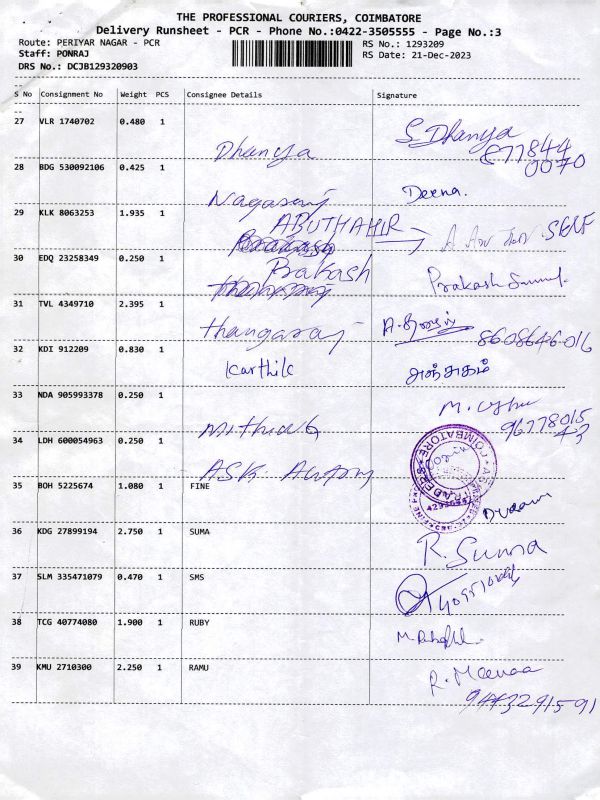 THE PROFESSIONAL COURIERS, COIMBATORE
Delivery Runsheet - PCR - Phone No.:0422-3505555 - Page No.:3
Route: PERIYAR NAGAR - PCR RS No.: 1293209
Staff: PONRAJ RS Date: 21-Dec-2023
DRS No.: DCJB129320903
S No Consignment No Weight PCS Consignee Details Signature
27 VLR 1740702 0.480 1
Dhanya S. Dhanya
877844
0070
28 BDG 530092106 0.425 1
Nagasaraj Deena.
29 KLK 8063253 1.935 1
ABUTHAHIR SELF
30 EDQ 23258349 0.250 1
Prakash Prakash
31 TVL 4349710 2.395 1
thangaraj 8608646016
32 KDI 912209 0.830 1
Karthik
33 NDA 905993378 0.250 1
M. Usha
96778015
43
34 LDH 600054963 0.250 1
ASK
35 BOH 5225674 1.080 1 FINE
COIMBATORE
36 KDG 27899194 2.750 1 SUMA
R. Suma
37 SLM 335471079 0.470 1 SMS
38 TCG 40774080 1.900 1 RUBY
39 KMU 2710300 2.250 1 RAMU
R. Meenaa
9443291591